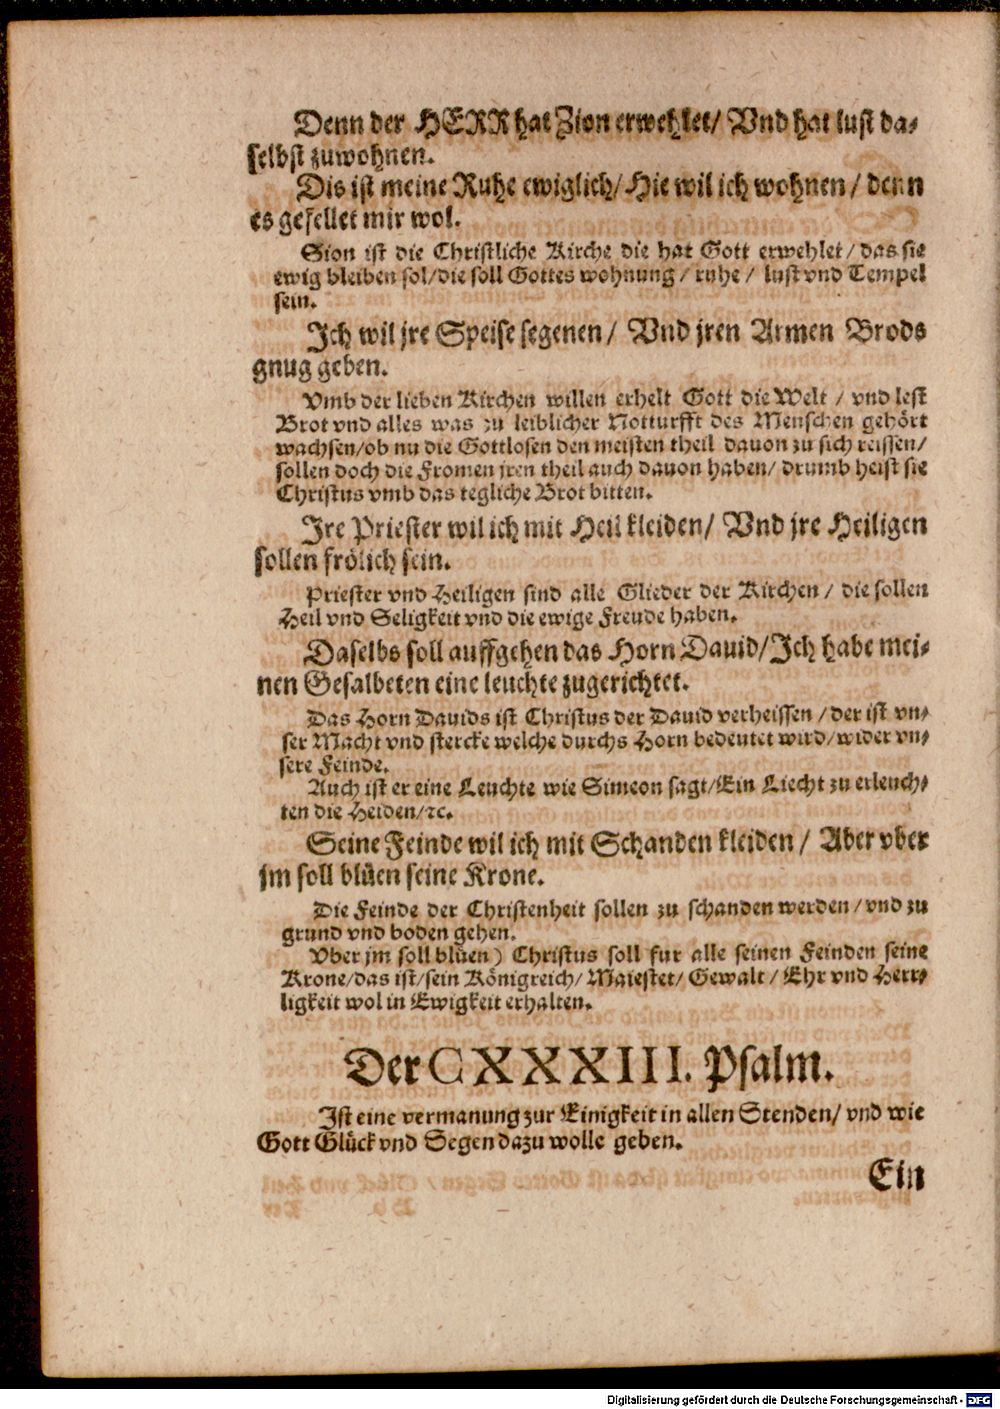 Denn der HERR hat Zion erwehlet/ Vnd hat lust da⸗
selbst zuwohnen.
Dis ist meine Ruhe ewiglich/ Hie wil ich wohnen / denn
es gefellet mir wol.
Sion ist die Christliche Kirche die hat Gott erwehlet / das sie
ewig bleiben sol/ die soll Gottes wohnung / ruhe / lust vnd Tempel
sein.
Ich wil jre Speise segenen / Vnd jren Armen Brods
gnug geben.
Vmb der lieben Kirchen willen erhelt Gott die Welt / vnd lest
Brot vnd alles was zu leiblicher Notturfft des Menschen gehört
wachsen/ ob nu die Gottlosen den meisten theil dauon zu sich reissen/
sollen doch die Fromen jren theil auch dauon haben/ drumb heist sie
Christus vmb das tegliche Brot bitten.
Ire Priester wil ich mit Heil kleiden/ Vnd jre Heiligen
sollen frölich sein.
Priester vnd Heiligen sind alle Glieder der Kirchen / die sollen
Heil vnd Seligkeit vnd die ewige Freude haben.
Daselbs soll auffgehen das Horn Dauid/ Ich habe mei⸗
nen Gesalbeten eine leuchte zugerichtet.
Das Horn Dauids ist Christus der Dauid verheissen / der ist vn⸗
ser Macht vnd stercke welche durchs Horn bedeutet wird/ wider vn⸗
sere Feinde.
Auch ist er eine Leuchte wie Simeon sagt/ Ein Liecht zu erleuch⸗
ten die Heiden/ ꝛc.
Seine Feinde wil ich mit Schanden kleiden / Aber vber
jm soll blüen seine Krone.
Die Feinde der Christenheit sollen zu schanden werden / vnd zu
grund vnd boden gehen.
Vber jm soll blüen) Christus soll fur alle seinen Feinden seine
Krone/ das ist/ sein Königreich/ Maiestet/ Gewalt / Ehr vnd Herr⸗
ligkeit wol in Ewigkeit erhalten.
Der CXXXIII. Psalm.
Ist eine vermanung zur Einigkeit in allen Stenden/ vnd wie
Gott Glück vnd Segen dazu wolle geben.
Ein
Digitalisierung gefördert durch die Deutsche Forschungsgemeinschaft - DFG